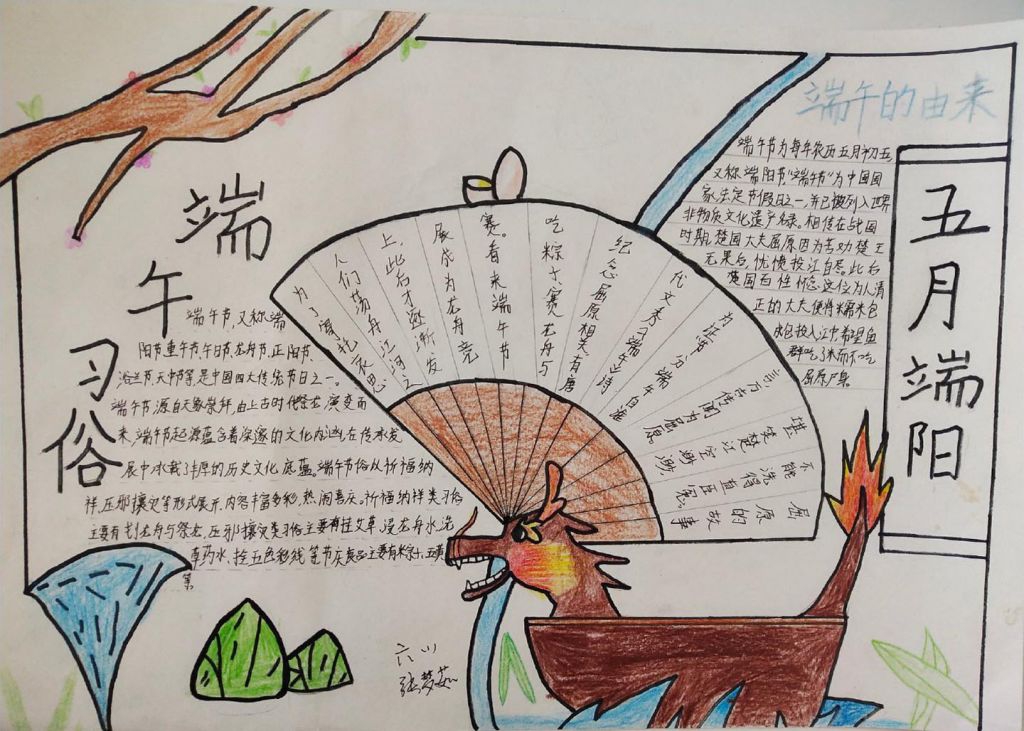 端午习俗
端午节,又称端
阳节、重午节、午日节、龙舟节、正阳节、
浴兰节、天中节等,是中国四大传统节日之一。
端午节源自天象崇拜,由上古时代祭龙演变而
来,端午节起源蕴含着深邃的文化内涵,在传承发
展中承载了丰厚的历史文化底蕴。端午节俗以祈福纳
祥、压邪攘灾等形式展开,内容丰富多彩,热闹喜庆。祈福纳祥类习俗
主要有划龙舟与祭龙,压邪攘灾类习俗主要有挂艾草、浸龙舟水、洗
草药水、拴五色彩线等。节庆食品主要有粽子、五黄
等
屈原的故事
不能洗得直臣冤
堪笑楚江空渺渺
言万古传闻为屈原
为准节分端午自
代文秀《端午》诗
纪念屈原相关,有唐
吃粽子、赛龙舟与
赛。看来端午节
展成为龙舟竞
上,此后才逐渐发
人们荡舟江河之
为了寄托哀思
端午的由来
端午节为每年农历五月初五,
又称端阳节"端午节"为中国国
家法定节假日之一,并已被列入世界
非物质文化遗产名录。相传在战国
时期,楚国大夫屈原因为苦劝楚王
无果后,忧愤投江自尽。此后
楚国百姓怀念这位为人清
正的大夫便将糯米包
成包投入江中,希望鱼
群吃了米而不吃
屈原尸身。
五月端阳
六川
张梦茹